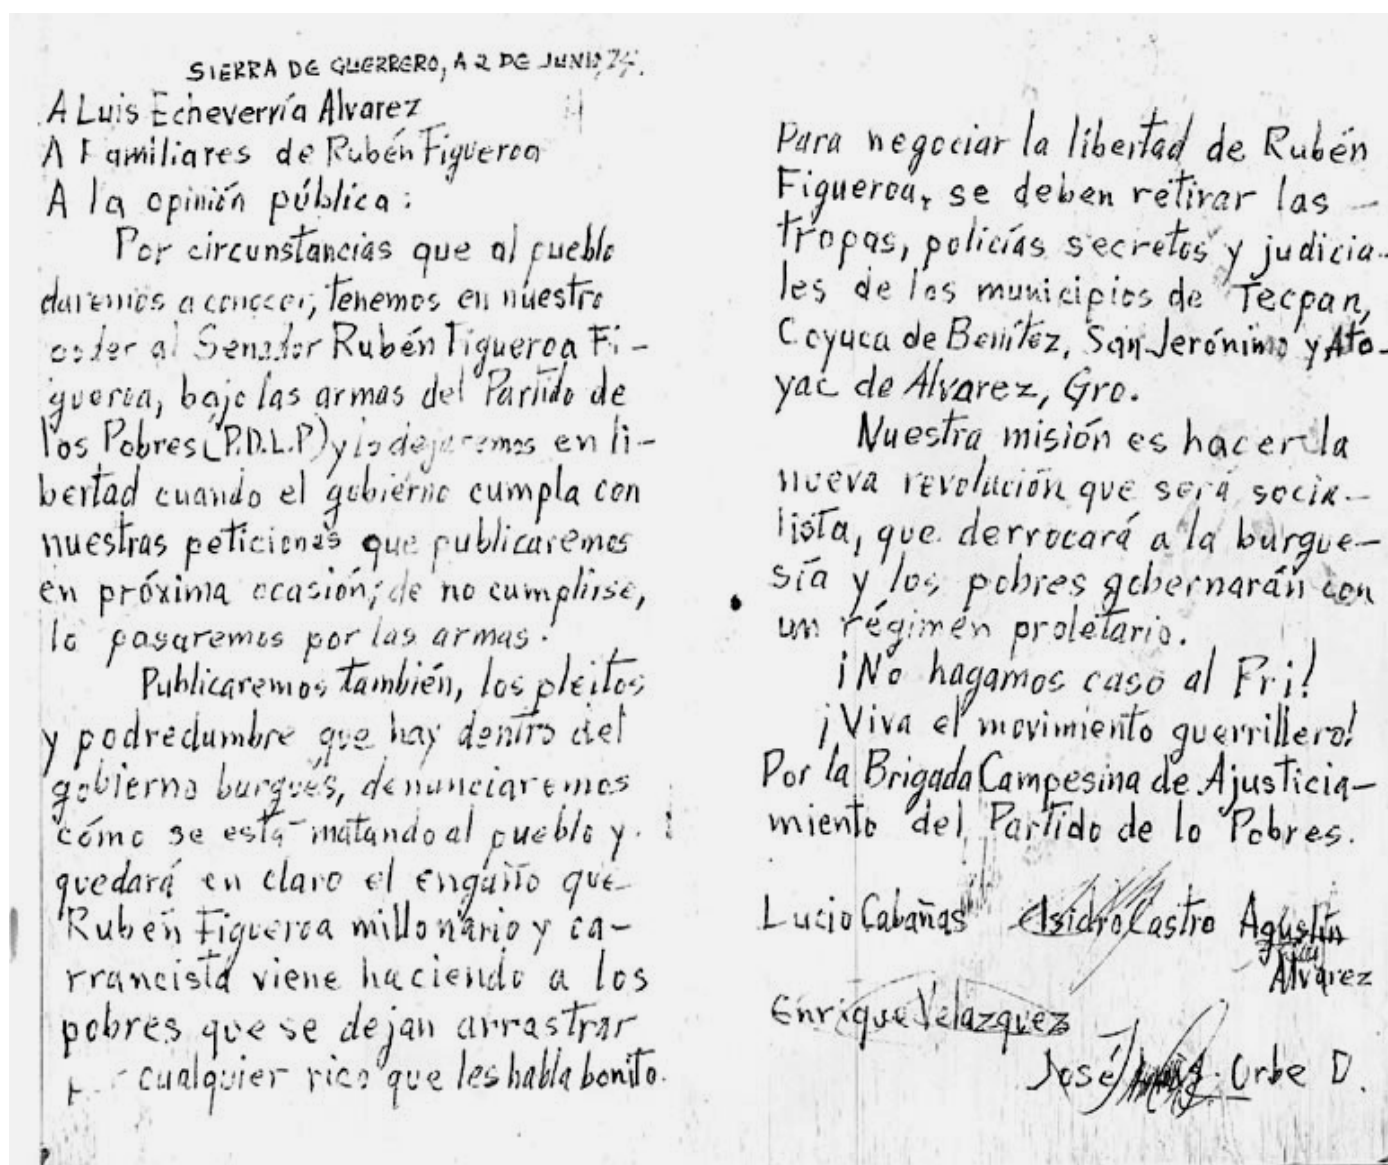 SIERRA DE GUERRERO, A 2 DE JUNIO, 74.
A Luis Echeverría Alvarez
A Familiares de Rubén Figueroa
A la opinión pública:
Por circunstancias que al pueblo
daremos a conocer, tenemos en nuestro
poder al Senador Rubén Figueroa Fi-
gueroa, bajo las armas del Partido de
los Pobres (P.D.L.P) y lo dejaremos en li-
bertad cuando el gobierno cumpla con
nuestras peticiones que publicaremos
en próxima ocasión; de no cumplirse,
lo pasaremos por las armas.
Publicaremos también, los pleitos
y podredumbre que hay dentro del
gobierno burgués, denunciaremos
cómo se está matando al pueblo y
quedará en claro el engaño que
Rubén Figueroa millonario y ca-
rrancista viene haciendo a los
pobres que se dejan arrastrar
cualquier rico que les habla bonito.
Para negociar la libertad de Rubén
Figueroa, se deben retirar las
tropas, policías secretos y judicia-
les de los municipios de Tecpan,
Coyuca de Benítez, San Jerónimo y Ato-
yac de Alvarez, Gro.
Nuestra misión es hacer la
nueva revolución que será socia-
lista, que derrocará a la burgue-
sía y los pobres gobernarán con
un régimen proletario.
¡No hagamos caso al Pri!
¡Viva el movimiento guerrillero!
Por la Brigada Campesina de Ajusticia-
miento del Partido de lo Pobres.
Lucio Cabañas Isidro Castro Agustín
Alvarez
Enrique Velazquez
José Luis Orbe D.